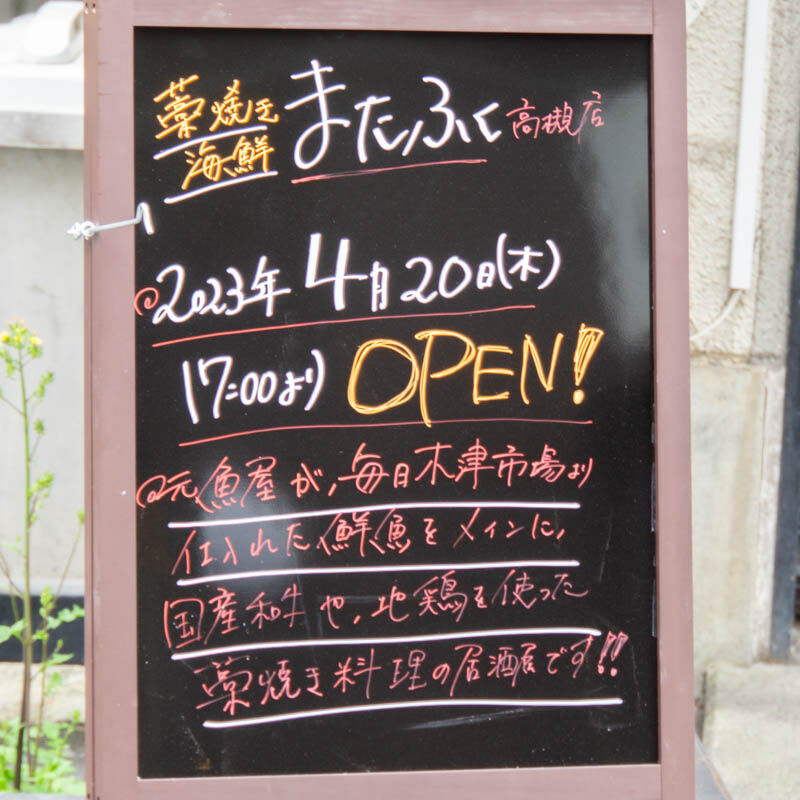 藁焼き
海鮮
またふく 高槻店
2023年 4月20日(木)
17:00より OPEN!
元魚屋が、毎日木津市場より
仕入れた鮮魚をメインに、
国産和牛や、地鶏を使った
藁焼き料理の居酒屋です!!